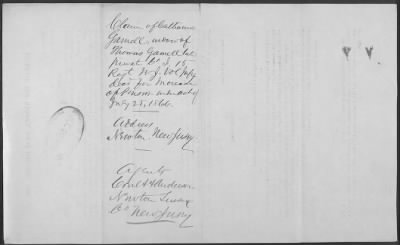 Claim of Catharine
Gamell widow of
Thomas Gamell late
private Co I, 15
Regt N.J. Vol Infy
dec'd for Increase
of Pension under act of
July 25, 1866.
Address
Newton New Jersey
Agents
Newton Sussex
Co New Jersey